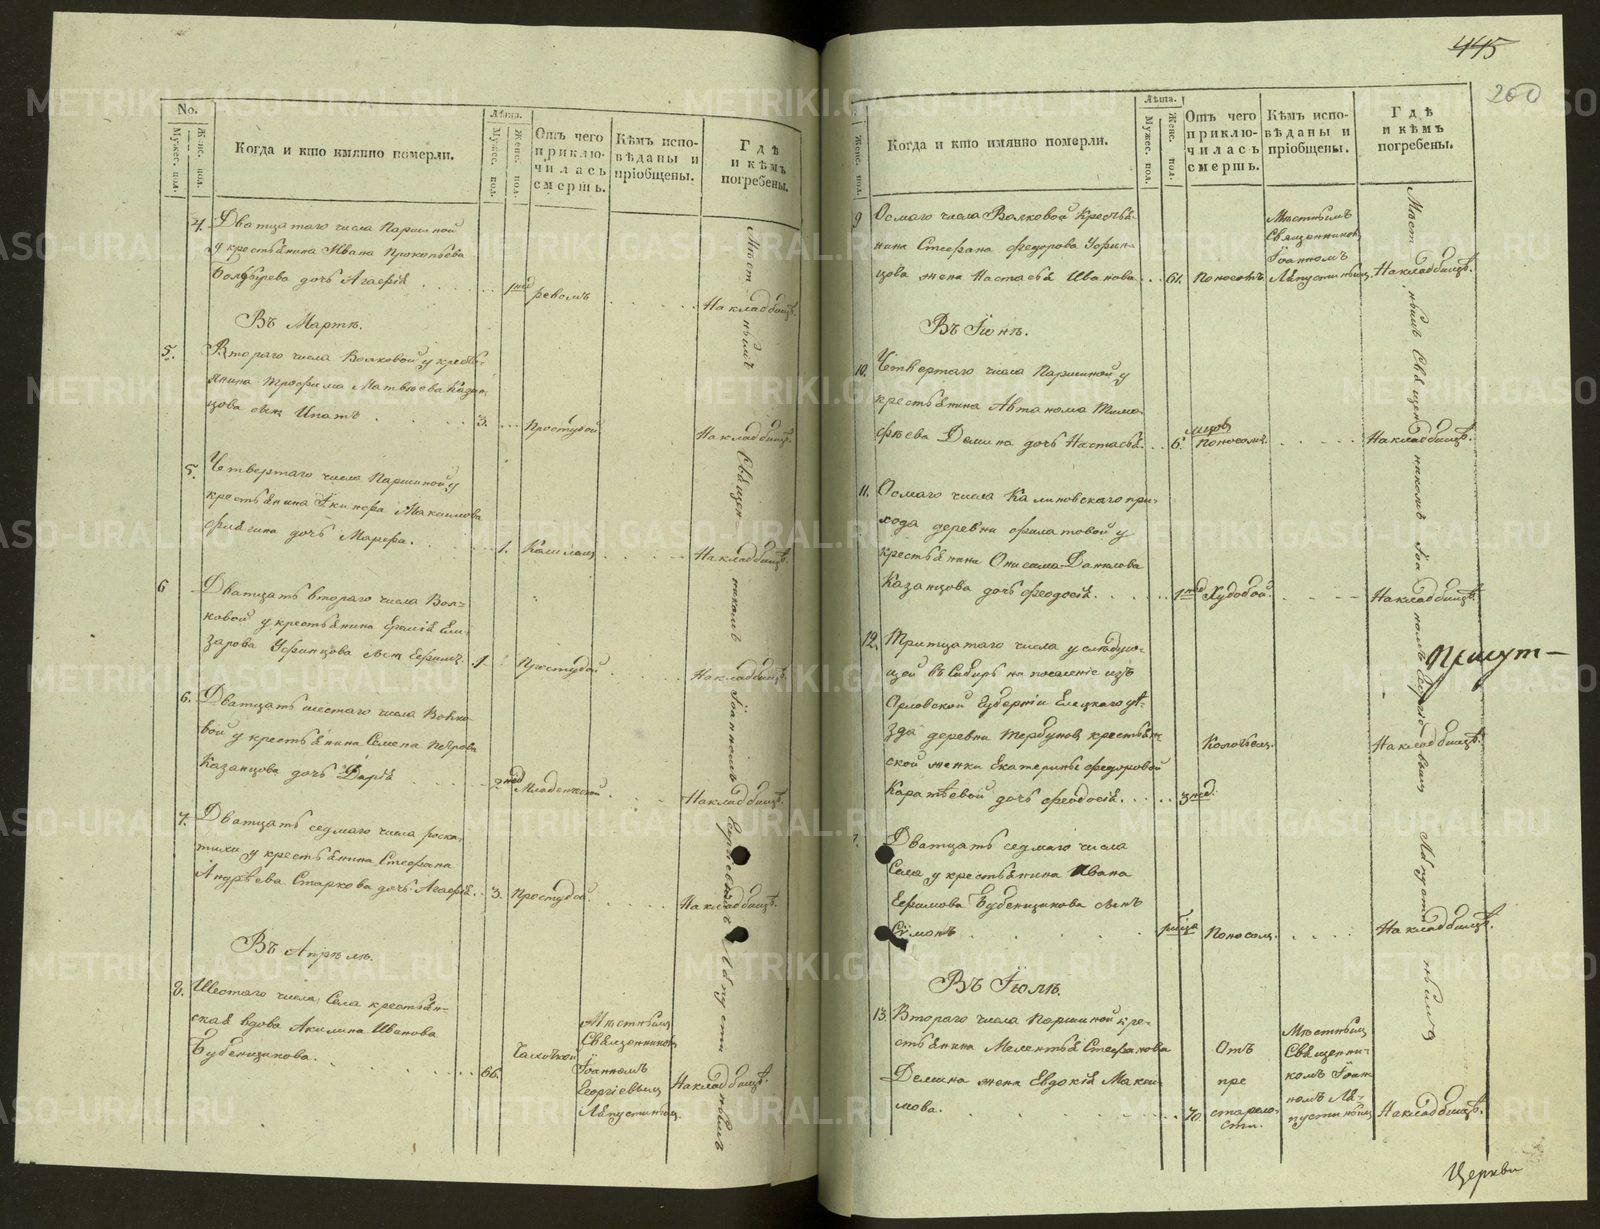 No.
Мужес. пол.
Женс. пол.
Когда и кто имянно померли.
Лѣта.
Мужес. пол.
Женс. пол.
Отъ чего
приклю-
чилась
смерть.
Кѣмъ испо-
вѣданы и
пріобщены.
Гдѣ
и кѣмъ
погребены.
4. Дватцатаго числа Паршиной
у крестьянина Ивана Прокопьева
Болдырева дочь Агафія
1 нед ревомъ
На кладбищѣ.
Въ Мартѣ.
5. Втораго числа Волковой у кресть-
янина Трофима Матвѣева Казан-
цова сынъ Ипатъ
3. Простудой
На кладбищѣ.
5. Четвертаго числа Паршиной у
крестьянина Максимова
дочь Марфа.
1. Кашлемъ
На кладбищѣ
6 Дватцать втораго числа Вол-
ковой у крестьянина Ели-
зарова Уфинцова сынъ Ефимъ.
1 Простудой
На кладбищѣ.
6. Дватцать шестаго числа Волко-
вой у крестьянина Семена Петрова
Казанцова дочь Дарія
2 нед Младенческой
На кладбищѣ.
7. Дватцать седмаго числа
у крестьянина Стефана
Андрѣева Старкова дочь Агафія.
3. Простудой.
На кладбищѣ.
Въ Апрѣлѣ.
8. Шестаго числа, Села крестьян-
ская вдова Акилина Иванова
Бубенщикова.
66. Чахоткой
Мѣстнымъ
Священникомъ
Іоанномъ
Георгіевымъ
Ляпустинымъ.
На кладбищѣ.
Мѣстнымъ Священникомъ Іоанномъ Георгіевымъ Ляпустинымъ
445
260
Женс. пол.
Когда и кто имянно померли.
Лѣта.
Мужес. пол.
Женс. пол.
Отъ чего
приклю-
чилась
смерть.
Кѣмъ испо-
вѣданы и
пріобщены.
Гдѣ
и кѣмъ
погребены.
9 Осмаго числа Волковой крестья-
нина Стефана Федорова Уфин-
цова жена Настасья Иванова
61. Поносомъ
Мѣстнымъ
Священникомъ
Іоанномъ
Ляпустинымъ
На кладбищѣ.
Въ Іюнѣ.
10. Четвертаго числа Паршиной у
крестьянина Автанома Тимо-
фѣева Демина дочь Настасья
6 мцов Поносомъ.
На кладбищѣ.
11. Осмаго числа Калиновскаго при-
хода деревни Филатовой у
крестьянина Онисима Данилова
Казанцова дочь Феодосія.
1 нед Худобой.
На кладбищѣ.
12. Тритцатаго числа у слѣдую-
щей въ Сибирь на поселеніе изъ
Орловской Губерніи Елецкаго уѣ-
зда деревни Тербуновъ крестьян-
ской женки Екатерины Федоровой
Каратѣевой дочь Феодосія.
3 нед. Колотьем.
На кладбищѣ.
Дватцать седмаго числа
Села у крестьянина Ивана
Ефимова Бубенщикова сынъ
Сѵмонъ
Поносомъ.
На кладбищѣ.
Въ Іюлѣ.
13. Втораго числа Паршиной кре-
стьянина Мелентья Стефанова
Демина жена Евдокія Макси-
мова.
70. Отъ
пре
старело-
сти.
Мѣстнымъ
Священни-
комъ Іоан-
номъ Ля-
пустинымъ
На кладбищѣ.
Мѣстнымъ Священникомъ Іоанномъ Георгіевымъ Ляпустинымъ
Церкви
METRIKI.GASO-URAL.RU